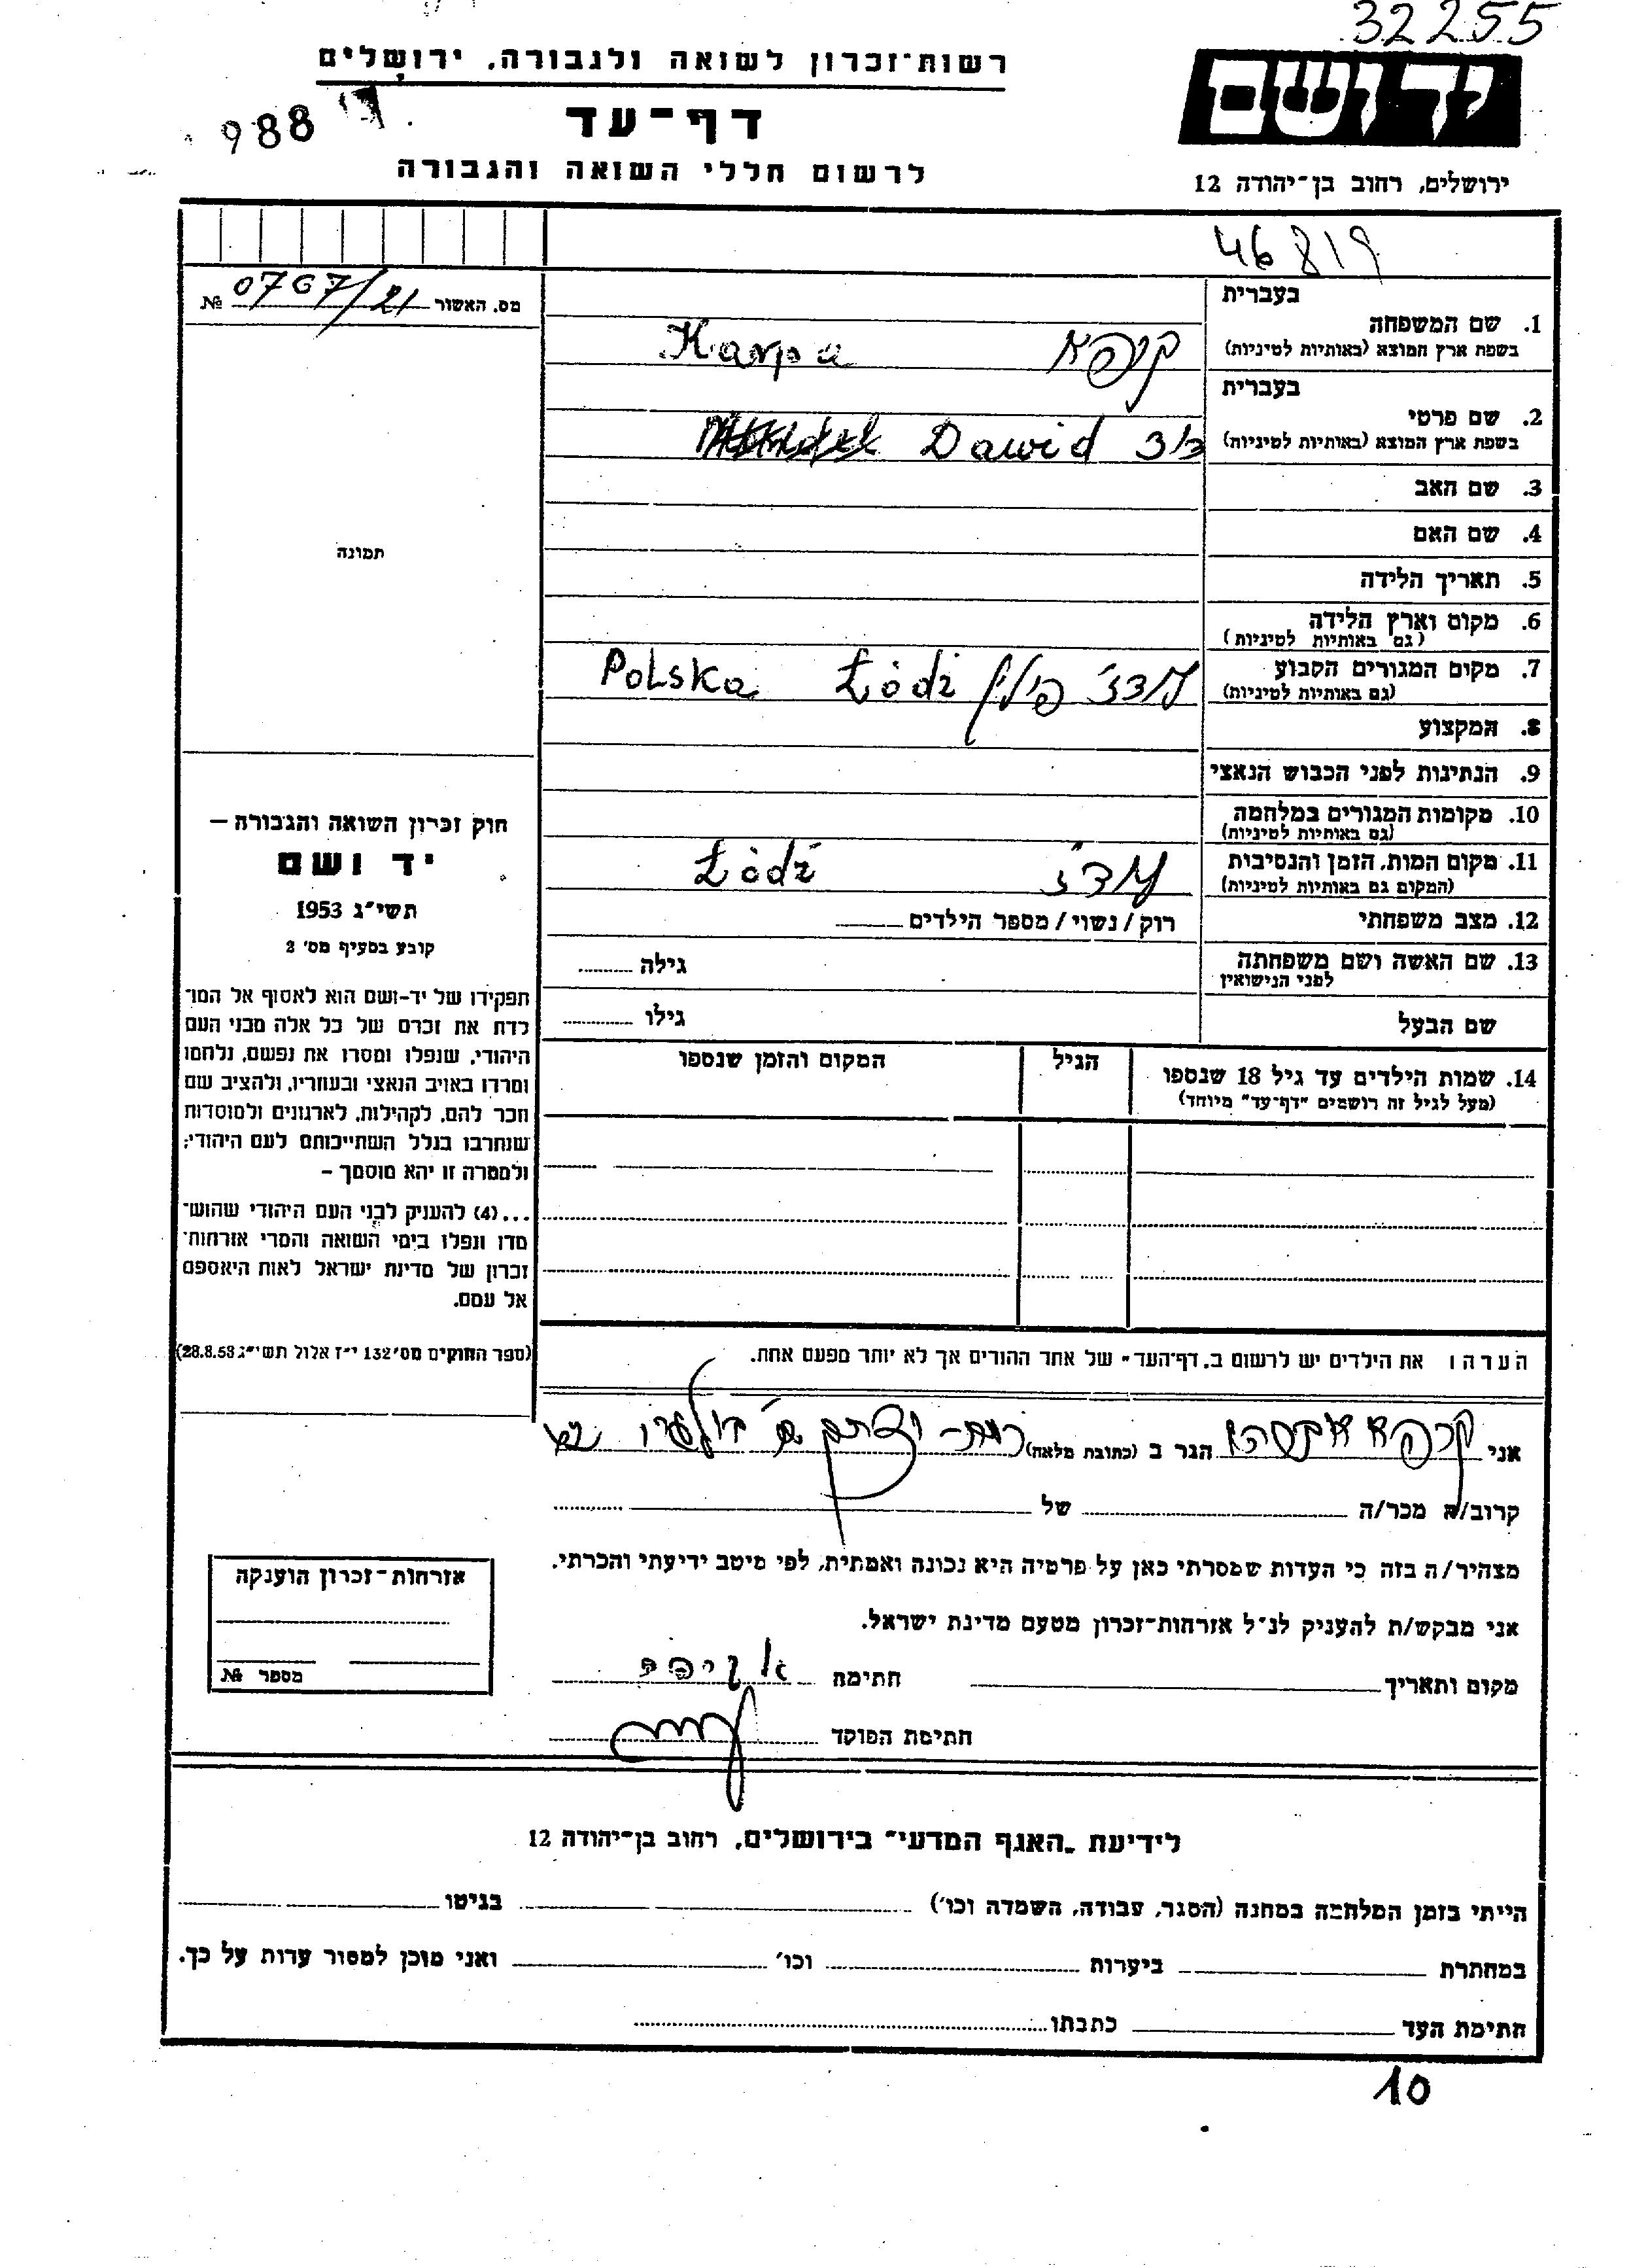 32255
רשות־זכרון לשואה ולגבורה, ירושלים
יד ושם
דף־עד
988
לרשום חללי השואה והגבורה
ירושלים, רחוב בן־יהודה 12
46819
מס. האשור 0767/21 №
בעברית
1. שם המשפחה
בשפת ארץ המוצא (באותיות לטיניות)
קרפא Karpa
בעברית
2. שם פרטי
בשפת ארץ המוצא (באותיות לטיניות)
דוד Dawid
3. שם האב
4. שם האם
תמונה
5. תאריך הלידה
6. מקום וארץ הלידה
(גם באותיות לטיניות)
7. מקום המגורים הקבוע
(גם באותיות לטיניות)
לודז' פולין Łódź Polska
8. המקצוע
9. הנתינות לפני הכבוש הנאצי
10. מקומות המגורים במלחמה
(גם באותיות לטיניות)
11. מקום המות, הזמן והנסיבות
(המקום גם באותיות לטיניות)
לודז' Łódź
12. מצב משפחתי
רוק/נשוי/מספר הילדים
13. שם האשה ושם משפחתה
לפני הנישואין
גילה
שם הבעל
גילו
14. שמות הילדים עד גיל 18 שנספו
(מעל לגיל זה רושמים "דף־עד" מיוחד)
הגיל
המקום והזמן שנספו
חוק זכרון השואה והגבורה –
יד ושם
תשי"ג 1953
קובע בסעיף מס' 2
תפקידו של יד-ושם הוא לאסוף אל המו־
לדת את זכרם של כל אלה מבני העם
היהודי, שנפלו ומסרו את נפשם, נלחמו
ומרדו באויב הנאצי ובעוזריו, ולהציב שם
וזכר להם, לקהילות, לארגונים ולמוסדות
שנחרבו בגלל השתייכותם לעם היהודי;
ולמטרה זו יהא מוסמך –
...(4) להעניק לבני העם היהודי שהוש־
מדו ונפלו בימי השואה והמרי אזרחות־
זכרון של מדינת ישראל לאות היאספם
אל עמם.
(ספר החוקים מס' 132 י"ז אלול תשי"ג 28.8.53)
הערה: את הילדים יש לרשום ב"דף־העד" של אחד ההורים אך לא יותר מפעם אחת.
אני קרפא הגר ב (כתובת מלאה)
קרוב/ה מכר/ה של
מצהיר/ה בזה כי העדות שמסרתי כאן על פרטיה היא נכונה ואמתית, לפי מיטב ידיעתי והכרתי.
אני מבקש/ת להעניק לנ"ל אזרחות־זכרון מטעם מדינת ישראל.
מקום ותאריך חתימה
חתימת הפוקד
אזרחות־זכרון הוענקה
מספר №
לידיעת "האגף המדעי" בירושלים, רחוב בן־יהודה 12
הייתי בזמן המלחמה במחנה (הסגר, עבודה, השמדה וכו') בגיטו
במחתרת ביערות וכו' ואני מוכן למסור עדות על כך.
חתימת העד כתבתו
10